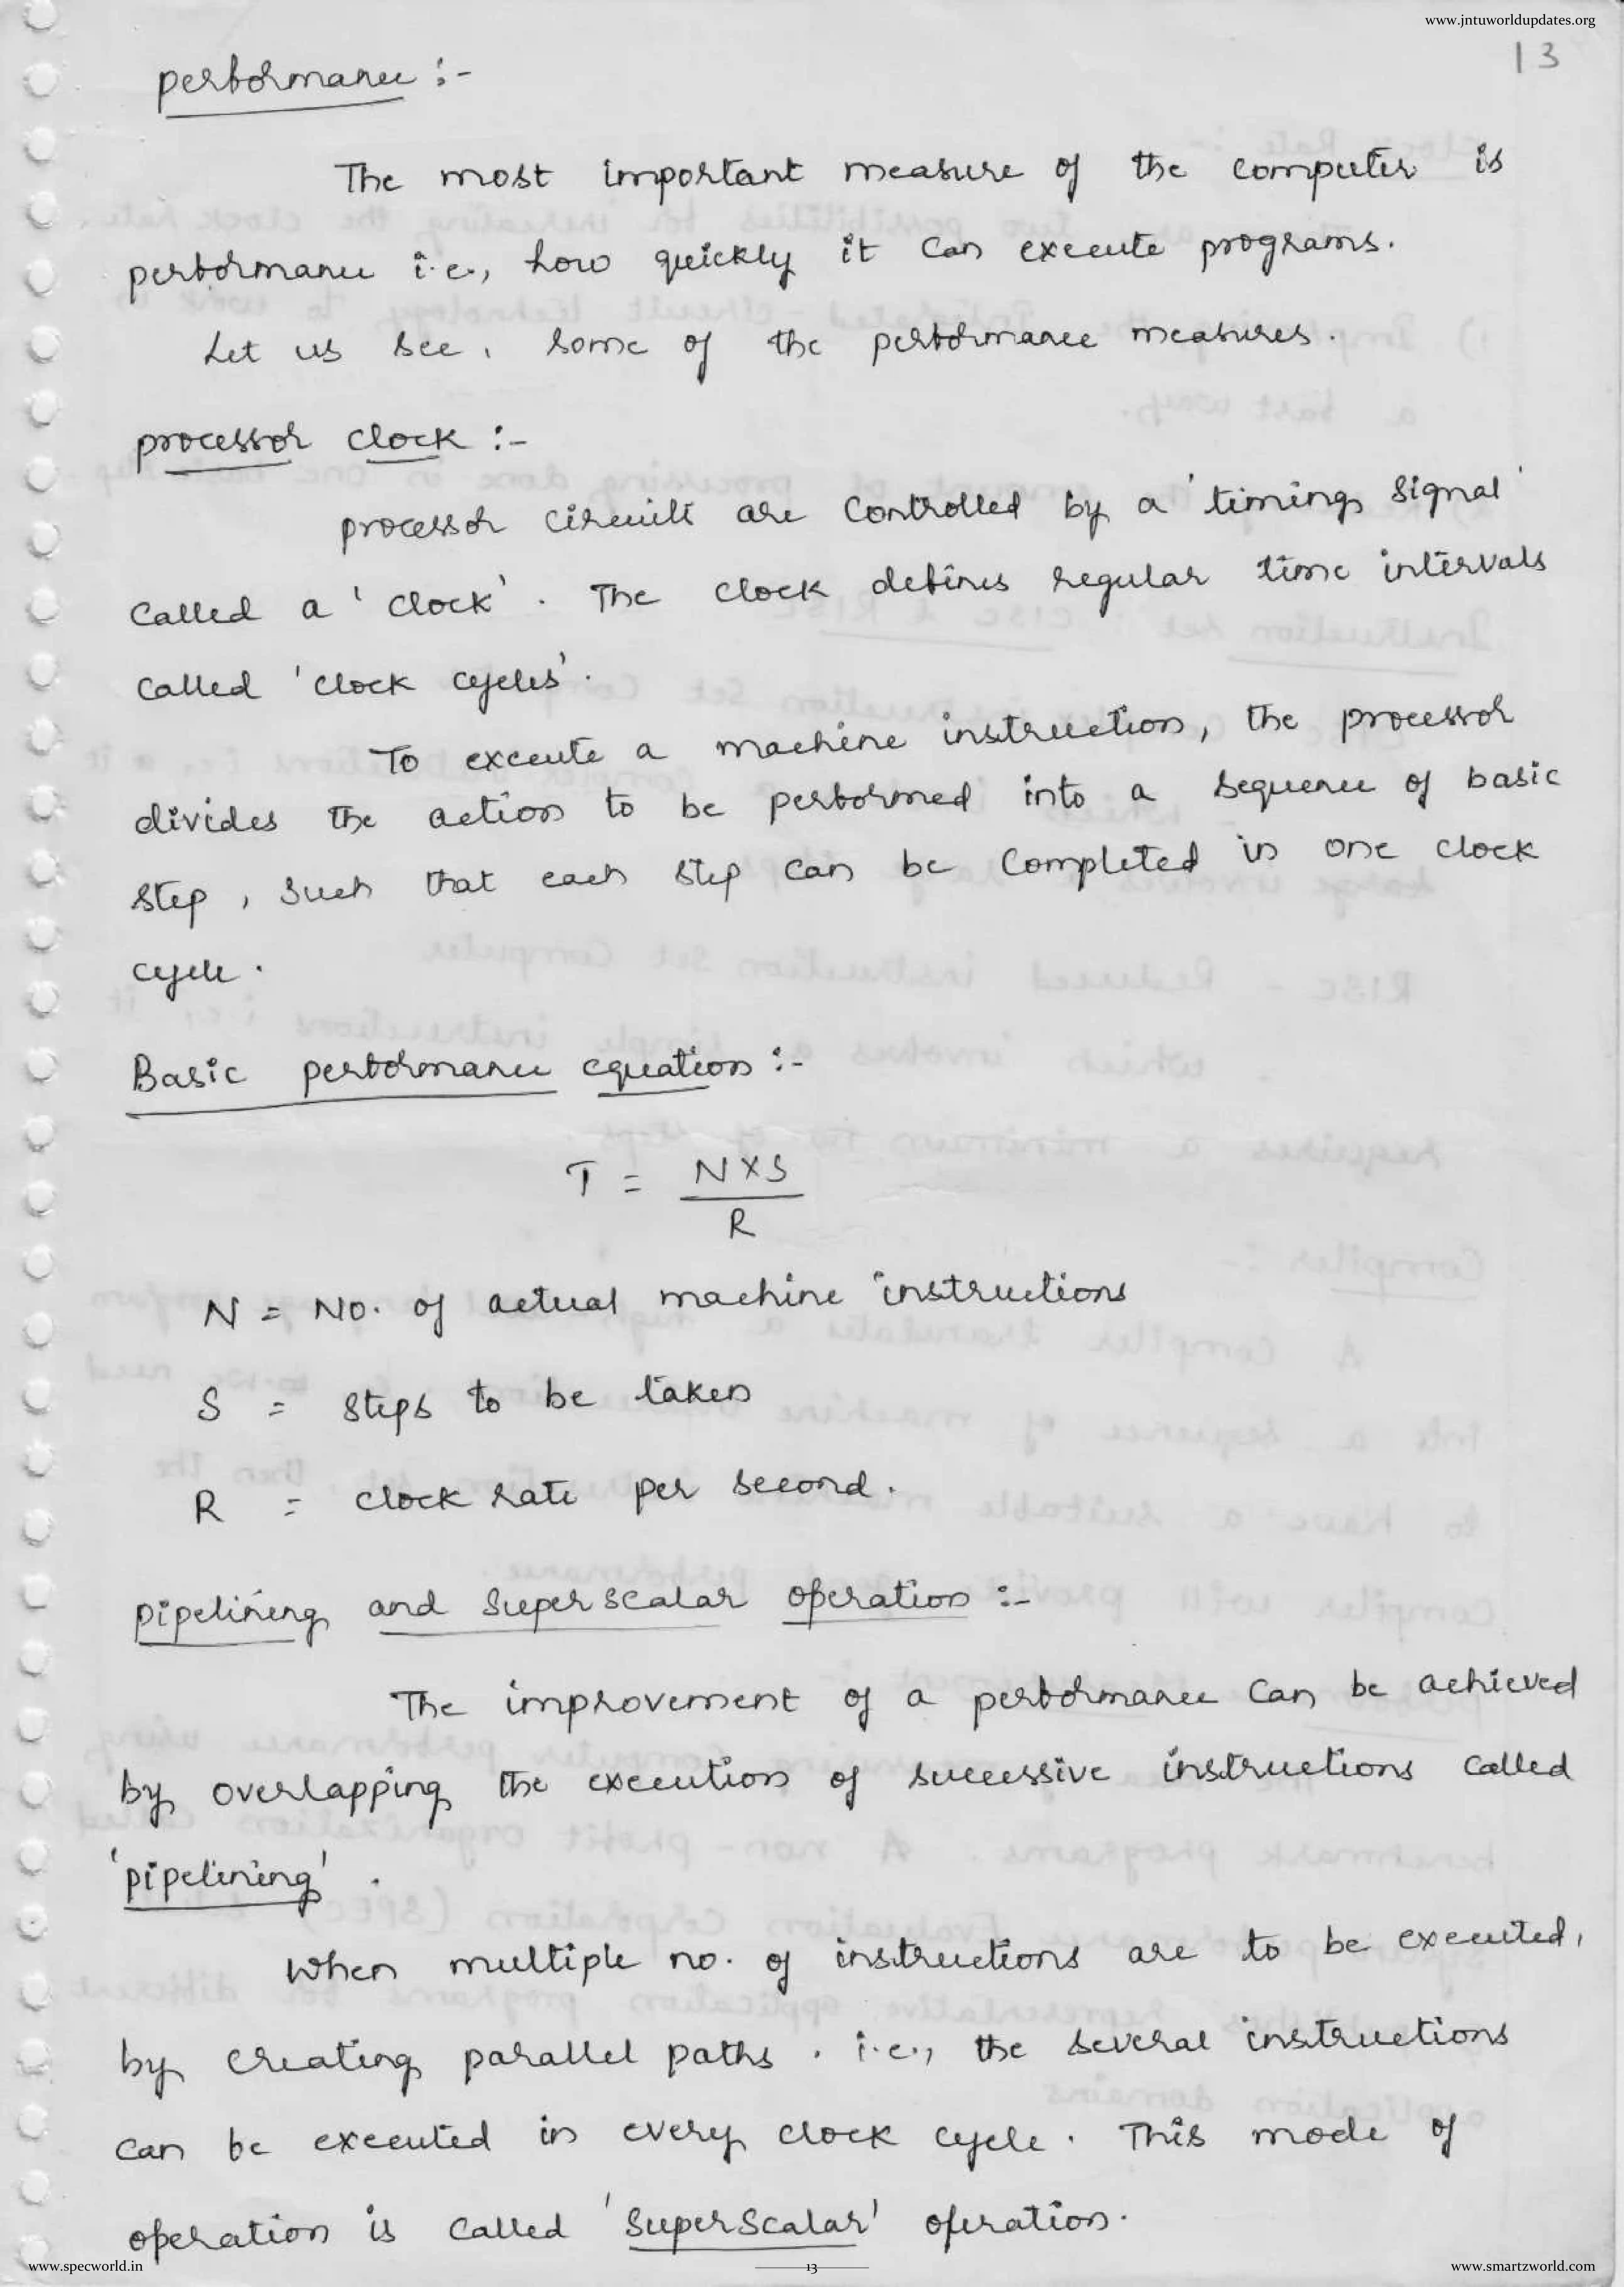 www.jntuworldupdates.org
13
performance :-
The most important measure of the computer is
performance i.e., how quickly it can execute programs.
Let us see, some of the performance measures.
processor clock :-
processor circuits are controlled by a 'timing signal'
called a 'clock'. The clock defines regular time intervals
called 'clock cycles'.
To execute a machine instruction, the processor
divides the action to be performed into a sequence of basic
step, such that each step can be completed in one clock
cycle.
Basic performance equation :-
T = N×S
R
N = No. of actual machine instructions
S = steps to be taken
R = clock rate per second.
pipelining and superscalar operation :-
The improvement of a performance can be achieved
by overlapping the execution of successive instructions called
'pipelining'.
When multiple no. of instructions are to be executed,
by creating parallel paths. i.e., the several instructions
can be executed in every clock cycle. This mode of
operation is called 'superscalar' operation.
www.specworld.in
13
www.smartzworld.com